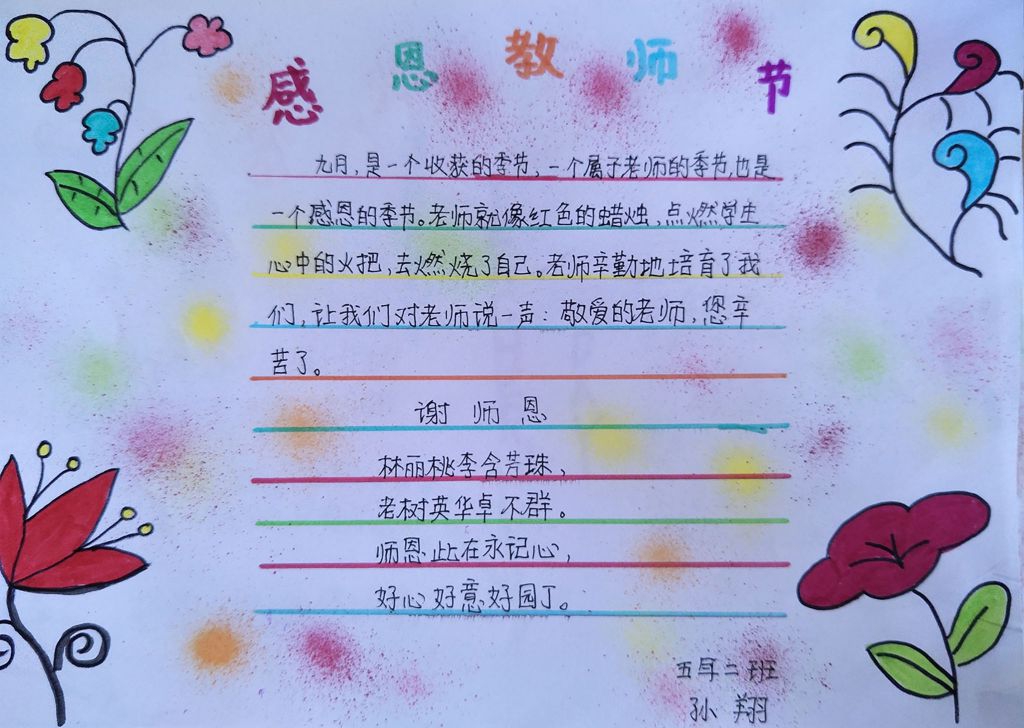 感恩教师节
九月,是一个收获的季节,一个属于老师的季节,也是
一个感恩的季节。老师就像红色的蜡烛,点燃学生
心中的火把,去燃烧了自己。老师辛勤地培育了我
们,让我们对老师说一声:敬爱的老师,您辛
苦了。
谢师恩
林丽桃李含芳珠,
老树英华卓不群。
师恩此在永记心,
好心好意好园丁。
五年二班
孙翔